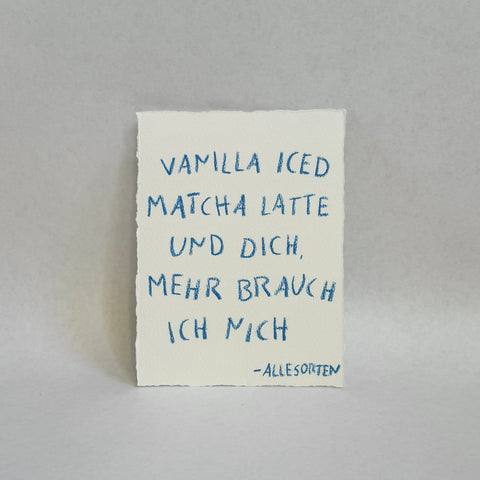 VANILLA ICED
MATCHA LATTE
UND DICH,
MEHR BRAUCH
ICH MICH
-ALLESORTEN